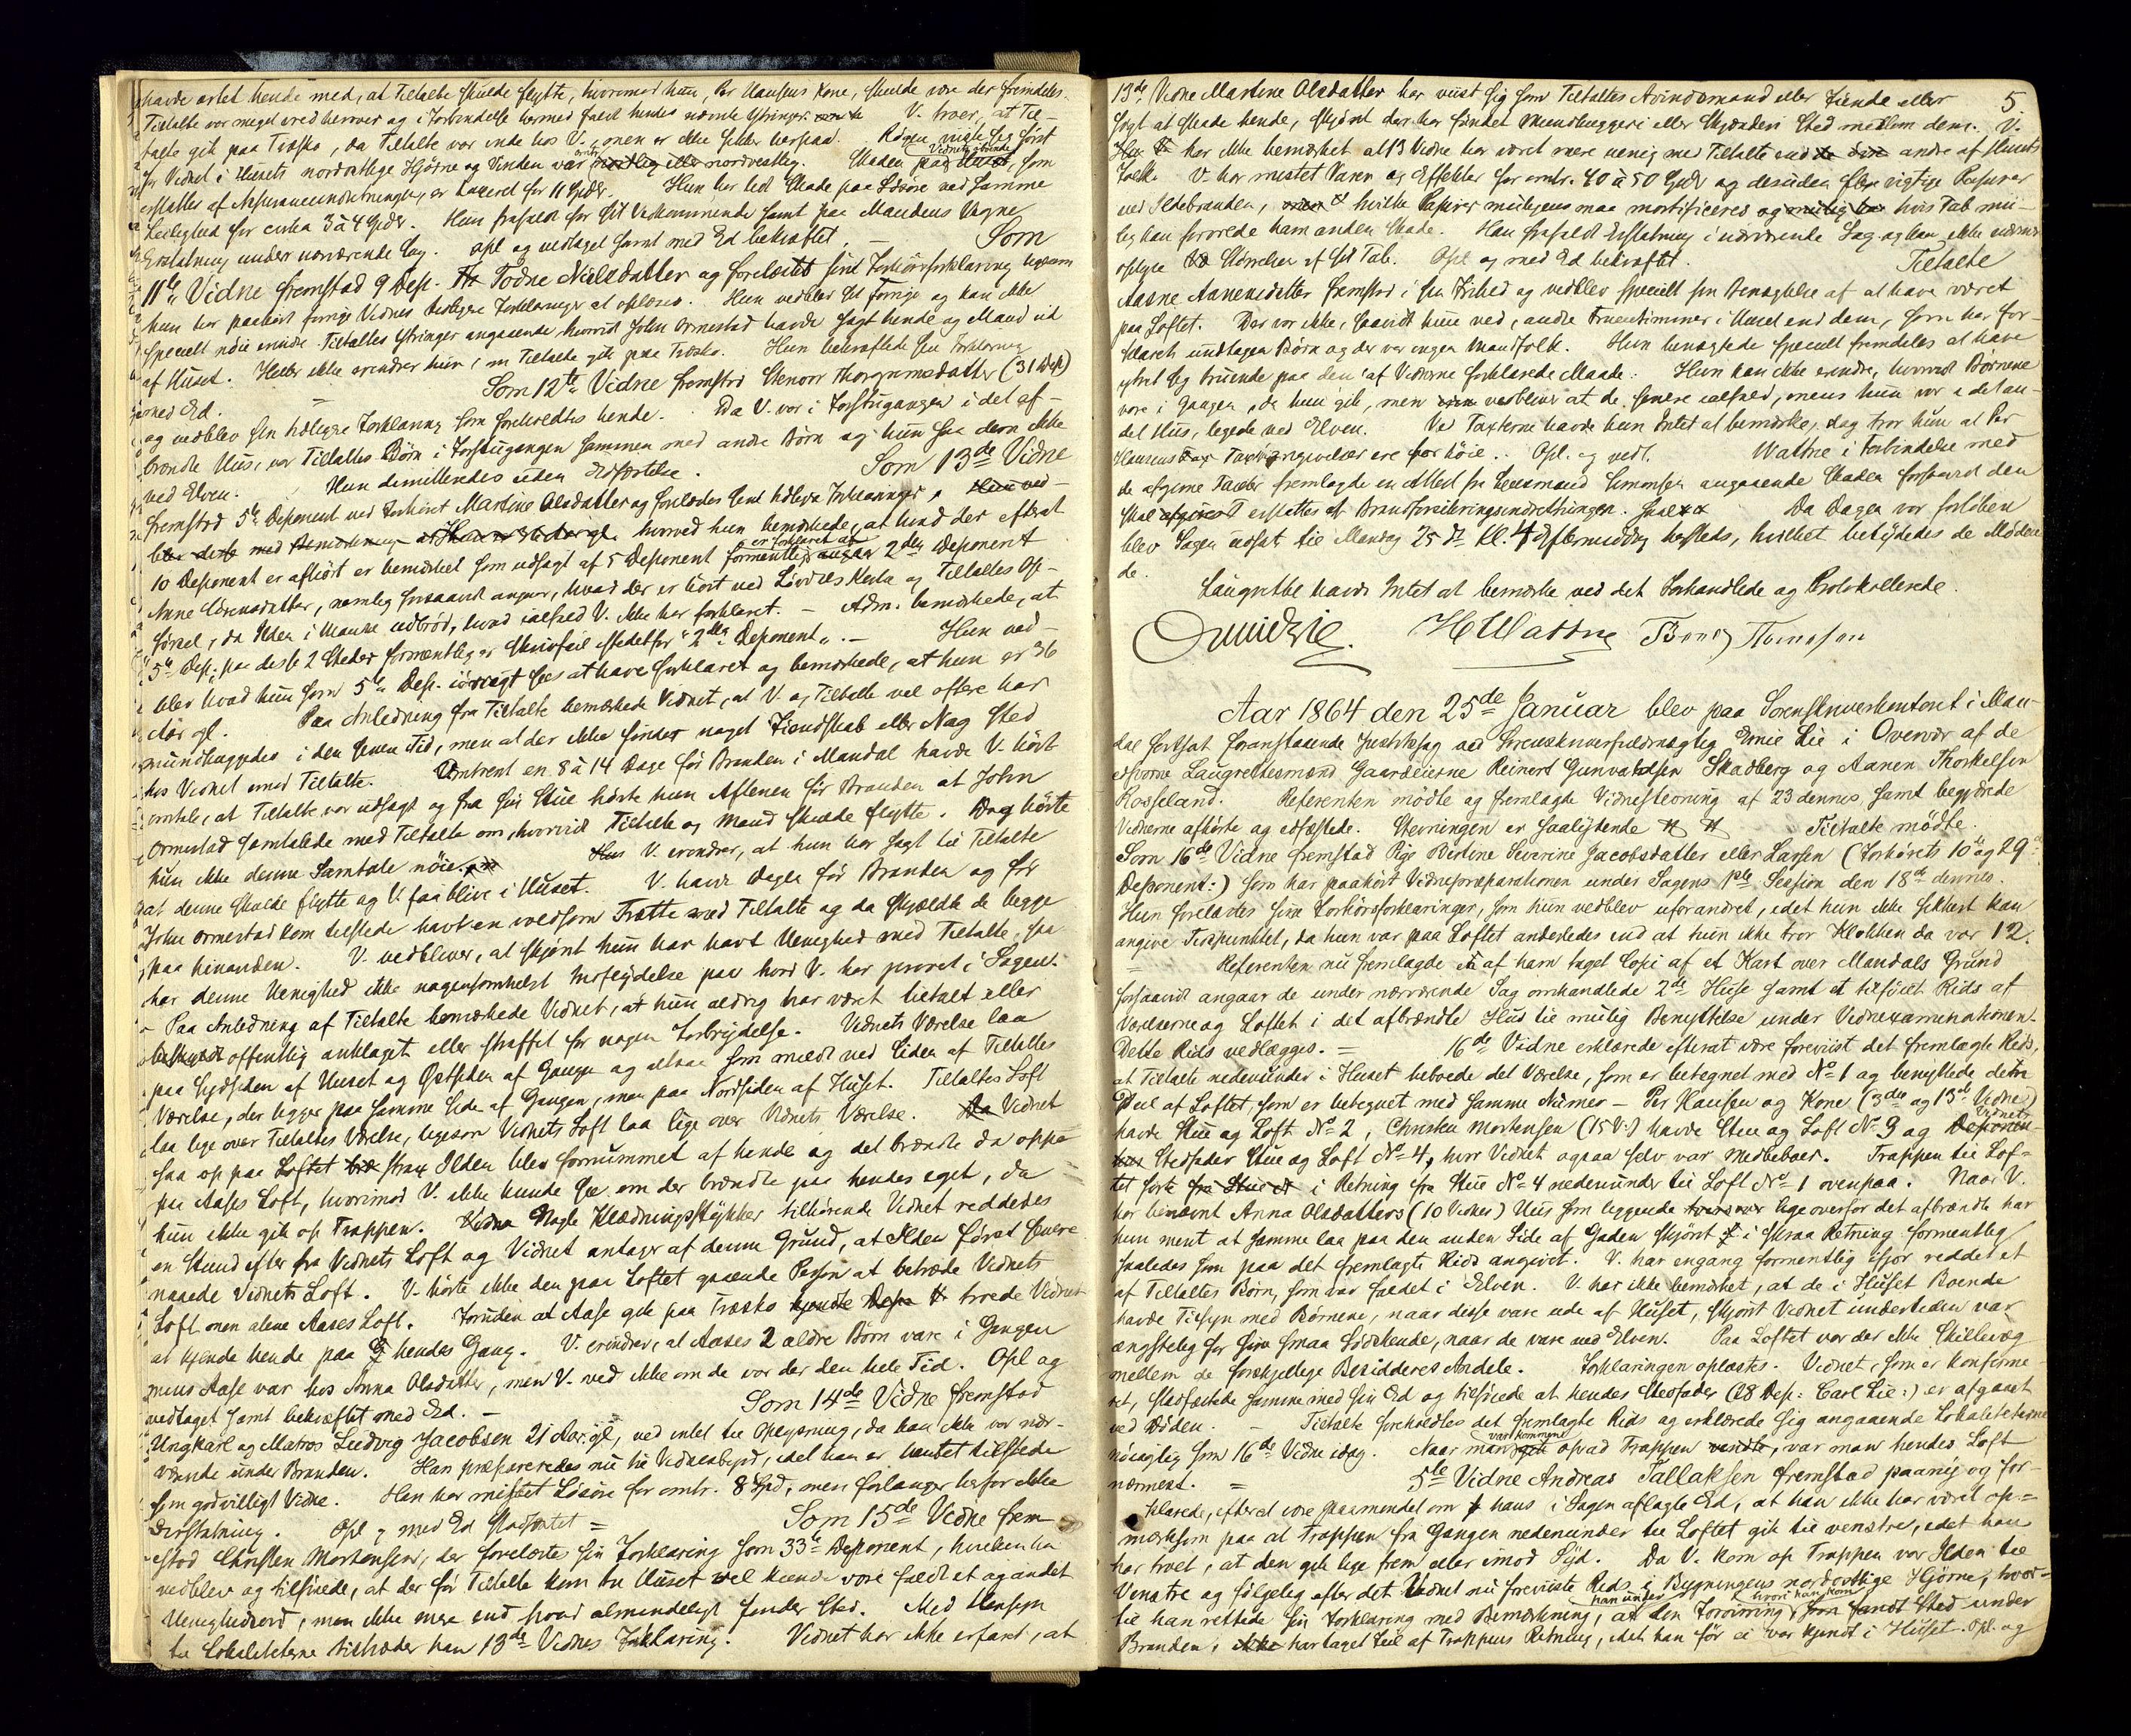 havde artet hende med, at Tiltalte skulde flytte, hvorimod hun, Per Hansens Kone, skulde være der fremdeles.
Tiltalte var meget vred herover og i Forbindelse hermed faldt hendes nævnte Ytringer. V. troer, at Til-
talte gik paa Træsko, da Tiltalte var inde hos V., men er ikke sikker herpaa. Røgen viste sig først
for Vidnet i Husets nordostlige Hjørne og Vinden var nordvestlig. Skaden paa Vidnets, som
erstattes af Assuranceindretningen, er taxeret for 11 Spdlr. Hun har lidt Skade paa Løsøre ved samme
Leilighed for cirka 3 à 4 Spdlr. Hun frafaldt for sit Vedkommende samt paa Mandens Vegne
Erstatning under nærværende Sag. Opl. og vedtaget samt med Ed bekræftet. — Som
11te Vidne fremstod 9 Dep. Todne Nielsdatter og forelæstes sin Forhørsforklaring ligesom
hun har paahørt forrige Vidnes Forklaringer at oplæses. Hun vedblev sit Forrige og kan ikke
specielt nøie erindre Tiltaltes Ytringer angaaende, hvorvidt John Ormestad havde sagt hende og Mand ud
af Huset. Heller ikke erindrer hun, om Tiltalte gik paa Træsko. Hun bekræftede sin Forklaring
med Ed. — Som 12te Vidne fremstod Elenore Thorgrimsdatter (31 Dep)
og vedblev sin tidligere Forklaring som foreholdtes hende. Da V. var i Forstugangen i det af-
brændte Hus, var Tiltaltes Børn i Forstugangen sammen med andre Børn og hun saa dem ikke
ved Elven. Hun dimitteredes uden Edfæstelse. Som 13de Vidne
fremstod 5te Deponent ved Forhøret Martine Olsdatter og forelæstes sine tidligere Forklaringer, Hun ved-
blev dette med Bemærkning hvorved hun bemærkede, at hvad der efterat
10 Deponent er afhørt er bemærket som udsagt af 5 Deponent formentlig er forklaret af 2den Deponent
Anne Sørensdatter, nemlig forsaavidt angaar, hvad der er hørt ved Lovises Kesta og Tiltaltes Op-
førsel, da Ilden i Manke udbrød, hvad ialfald V. ikke har forklaret. — Adm. bemærkede, at
5te Dep. paa disse 2 Steder formentlig er Skrivfeil istedetfor "2den Deponent". — Hun ved-
blev hvad hun som 5te Dep. iøvrigt sees at have forklaret og bemærkede, at hun er 36
Aar gl. Paa Anledning fra Tiltalte bemærkede Vidnet, at V. og Tiltalte vel oftere har
mundhugges i den senere Tid, men at der ikke finder noget Fiendskab eller Nag sted
hos Vidnet mod Tiltalte. Omtrent en 8 à 14 Dage før Branden i Mandal havde V. hørt
omtale, at Tiltalte var udsagt og fra sin Stue hørte hun Aftenen før Branden at John
Ormestad samtalede med Tiltalte om, hvorvidt Tiltalte og Mand skulde flytte. Dog hørte
hun ikke denne Samtale nøie. V. erindrer, at hun har sagt til Tiltalte
at denne skulde flytte og V. faa blive i Huset. V. havde Dagen før Branden og før
John Ormestad kom tilstede havt en voldsom Trætte med Tiltalte og da skjældte de begge
paa hinanden. V. vedbliver, at skjønt hun har havt Uenighed med Tiltalte, saa
har denne Uenighed ikke nogensomhelst Indflydelse paa hvad V. har provet i Sagen.
Paa Anledning af Tiltalte bemærkede Vidnet, at hun aldrig har været tiltalt eller
beskyldt offentlig anklaget eller straffet for nogen Forbrydelse. Vidnets Værelse laa
paa Sydsiden af Huset og Østsiden af Gangen og altsaa som mødt ved Siden af Tiltaltes
Værelse, der ligger paa samme Side af Gangen, men paa Nordsiden af Huset. Tiltaltes Loft
laa lige over Tiltaltes Værelse, ligesom Vidnets Loft laa lige over Vidnets Værelse. Da Vidnet
saa op paa Loftet strax Ilden blev fornummet af hende og det brændte da oppe
paa Aases Loft, hvorimod V. ikke kunde see om der brændte paa hendes eget, da
hun ikke gik op Trappen. Nogle Klædningsstykker tilhørende Vidnet reddedes
en Stund efter fra Vidnets Loft og Vidnet antager af denne Grund, at Ilden først senere
naaede Vidnets Loft. V. hørte ikke den paa Loftet gaaende Person at betræde Vidnets
Loft men alene Aases Loft. Foruden at Aase gik paa Træsko troede Vidnet
at kjende hende paa hendes Gang. V. erindrer, at Aases 2 ældre Børn vare i Gangen
mens Aase var hos Anna Olsdatter, men V. ved ikke om de var der den hele Tid. Opl. og
vedtaget samt bekræftet med Ed. — Som 14de Vidne fremstod
Ungkarl og Matros Ludvig Jacobsen 21 Aar gl., ved intet til Oplysning, da han ikke var nær-
værende under Branden. Han præpareredes nu til Vidnesbyrd, idet han er mødt tilstede
som godvilligt Vidne. Han har mistet Løsøre for omtr. 8 Spd, men forlanger herfor ikke
Erstatning. Opl. og med Ed stadfæstet = Som 15de Vidne frem-
stod Christen Mortensen, der forelæstes sin Forklaring som 33te Deponent, hvilken han
vedblev og tilføiede, at der før Tiltalte kom til Huset vel kunde være faldt et og andet
Uenighedsord, men ikke mere end hvad almindeligt finder Sted. Med Hensyn
til Lokaliteterne tiltræder han 13de Vidnes Forklaring. Vidnet har ikke erfaret, at
5.
13de Vidne Martine Olsdatter har viist sig som Tiltaltes Avindsmand eller Fiende eller
søgt at skade hende, skjønt der har fundet Mundhuggeri eller Skjænderi Sted mellem dem. V.
har ikke bemærket at 13 Vidne har været mere uenig med Tiltalte end andre af Husets
Folk. V. har mistet Varer og Effekter for omtr. 40 à 50 Spdlr og desuden flere vigtige Papirer
ved Ildebranden, hvilke Papirer muligens maa mortificeres og hvis Tab mu-
lig kan forvolde ham anden Skade. Han frafaldt Erstatning i nærværende Sag og kan ikke nærmere
oplyse Størrelsen af sit Tab. Opl. og med Ed bekræftet. Tiltalte
Aasne Aanensdatter fremstod i sin Frihed og vedblev specielt sin Benægtelse af at have været
paa Loftet. Der var ikke, saavidt hun ved, andre Fruentimmer i Huset end dem, som har for-
klaret undtagen Børn og der var ingen Mandfolk. Hun benægtede specielt fremdeles at have
ytret sig truende paa den af Vidnerne forklarede Maade. Hun kan ikke erindre, hvorvidt Børnene
vare i Gangen, da hun gik, men vedbliver at de senere ialfald, mens hun var i det an-
det Hus, legede ved Elven. Ved Taxterne havde hun Intet at bemærke, dog tror hun at Per
Hansens Taxtangivelser ere for høie. Opl. og vedt. Wattne i Forbindelse med
de afgivne Taxter fremlagde en Attest fra Lensmand Simonsen angaaende Skaden forsaavidt den
skal erstattes af Brandforsikringsindretningen. Saal. Da Dagen var forløben
blev Sagen udsat til Mandag 25 ds. Kl. 4 Eftermiddag hersteds, hvilket betydedes de Møden-
de.
Laugrettet havde Intet at bemærke ved det Forhandlede og Protokollerede.
HWattne Tønnes Thomassen
Aar 1864 den 25de Januar blev paa Sorenskriverkontoret i Man-
dal fortsat foranstaaende Justitssag ved Sorenskriverfuldmægtig Ernie Lie i Overvær af de
edsvorne Laugrettesmænd Gaardeierne Reinert Gunvaldsen Skadberg og Aanen Thorkelsen
Rosseland. Referenten mødte og fremlagde Vidnestevning af 23 dennes, samt begjærede
Vidnerne afhørte og edfæstede. Stevningen er saalydende Tiltalte mødte.
Som 16de Vidne fremstod Pige Bertine Severine Jacobsdatter eller Larsen (Forhørets 10de og 29de
Deponent:) som har paahørt Vidnepræparationen under Sagens 1ste Session den 18de dennes.
Hun forelæstes sine Forhørsforklaringer, som hun vedblev uforandret, idet hun ikke sikkert kan
angive Tidspunktet, da hun var paa Loftet anderledes end at hun ikke tror Klokken da var 12.
= Referenten nu fremlagde af ham taget Copi af et Kart over Mandals Grund
forsaavidt angaar de under nærværende Sag omhandlede 2de Huse samt et tilføiet Rids af
Værelserne og Loftet i det afbrændte Hus til mulig Benyttelse under Vidnexaminationen.
Dette Rids vedlægges. = 16de Vidne erklærede efterat være foreviist det fremlagte Rids,
at Tiltalte nedenunder i Huset beboede det Værelse, som er betegnet med No 1 og benyttede den
Deel af Loftet, som er betegnet med samme Numer — Per Hansen og Kone (3die og 13de Vidne)
havde Stue og Loft No 2, Christen Mortensen (15 V:) havde Stue og Loft No 3 og Vidnets
Stedfader Stue og Loft No 4, hvor Vidnet ogsaa selv var Medbeboer. Trappen til Lof-
tet førte i Retning fra Stue No 4 nedenunder til Loft No 1 ovenpaa. Naar V.
har benævnt Anna Olsdatters (10 Vidnes) Huus som liggende lige overfor det afbrændte har
hun ment at samme laa paa den anden Side af Gaden skjønt i skraa Retning formentlig
saaledes som paa det fremlagte Rids angivet. V. har engang formentlig ifjor reddet et
af Tiltaltes Børn, som var faldet i Elven. V. har ikke bemærket, at de i Huset Boende
havde Tilsyn med Børnene, naar disse vare ude af Huset, skjønt Vidnet undertiden var
ængstelig for sine smaa Sødskende, naar de vare ved Elven. Paa Loftet var der ikke Skillevæg
mellem de forskjellige Besidderes Andele. Forklaringen oplæstes. Vidnet, som er konfirme-
ret, stadfæstede samme med sin Ed og tilføiede at hendes Stedfader (28 Dep: Carl Lie:) er afgaaet
ved Døden. — Tiltalte foreholdtes det fremlagte Rids og erklærede sig angaaende Lokaliteterne
nøiagtig som 16de Vidne idag. Naar man var kommen opad Trappen, var man hendes Loft
nærmest. = 5te Vidne Andreas Tallaksen fremstod paany og for-
klarede, efterat være paamindet om hans i Sagen aflagte Ed, at han ikke har været op-
mærksom paa at Trappen fra Gangen nedenunder til Loftet gik til venstre, idet han
har troet, at den gik lige frem eller imod Syd. Da V. kom op Trappen var Ilden til
Venstre og følgelig efter det Vidnet nu foreviste Rids i Bygningens nordostlige Hjørne, hvor-
til han rettede sin Forklaring med Bemærkning, at han under den Forvirring, hvori han kom under
Branden, har taget Feil af Trappens Retning, idet han før ei var kjendt i Huset. Opl. og